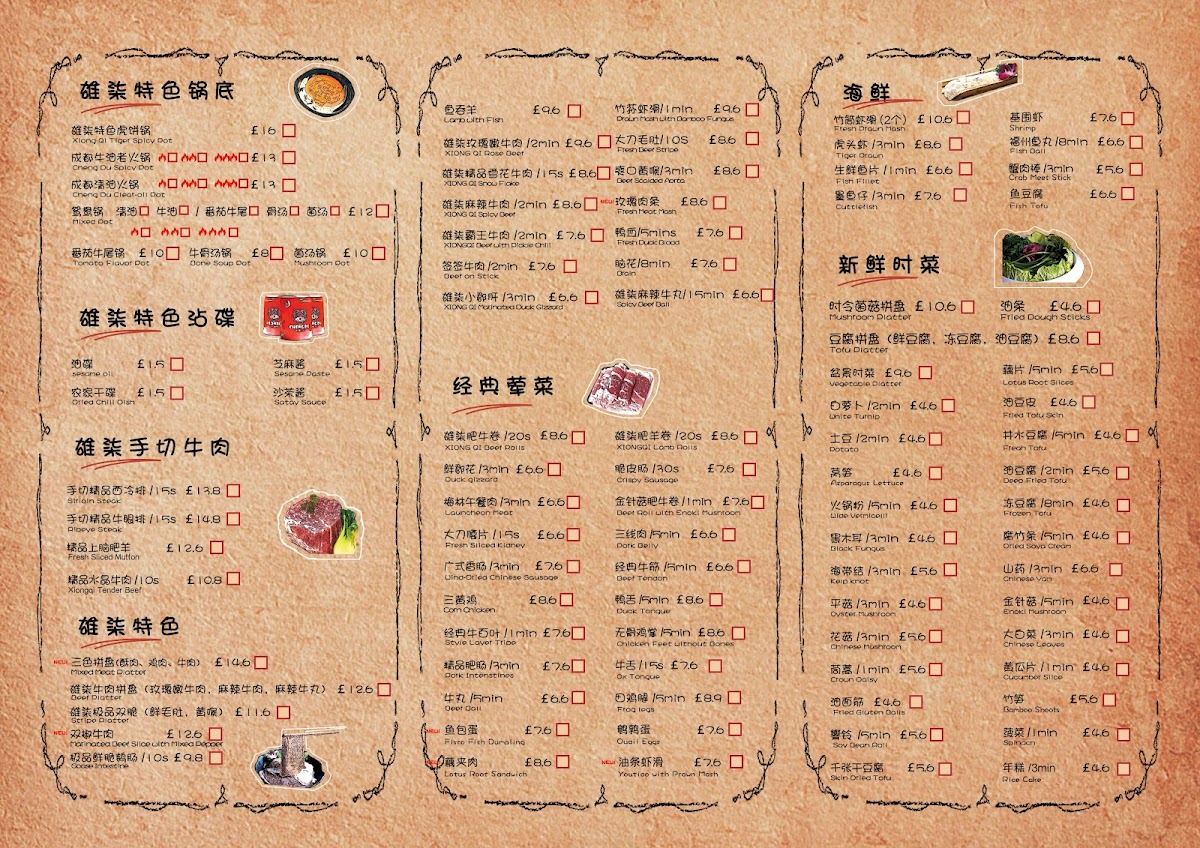 雄柒特色锅底
雄柒特色虎饼锅 £16
Xiong Qi Tiger Spicy Pot
成都牛油老火锅 £13
Cheng Du Spicy Pot
成都清油火锅 £13
Cheng Du Clear-oil Pot
鸳鸯锅 清油 牛油 / 番茄牛尾 骨汤 菌汤 £12
Mixed Pot
番茄牛尾锅 £10 牛骨汤锅 £8 菌汤锅 £10
Tomato Flavor Pot Bone Soup Pot Mushroom Pot
雄柒特色沾碟
油碟 £1.5 芝麻酱 £1.5
sesame oil Sesame Paste
农家干碟 £1.5 沙茶酱 £1.5
Dried Chili Dish Satay Sauce
雄柒手切牛肉
手切精品西冷排/15s £13.8
Sirloin Steak
手切精品牛眼排/15s £14.8
Ribeye Steak
精品上脑肥羊 £12.6
Fresh Sliced Mutton
精品水晶牛肉/10s £10.8
Xiongqi Tender Beef
雄柒特色
NEW! 三色拼盘(酥肉、鸡肉、牛肉) £14.6
Mixed Meat Platter
雄柒牛肉拼盘（玫瑰嫩牛肉、麻辣牛肉、麻辣牛丸）£12.6
Beef Platter
雄柒极品双脆（鲜毛肚、黄喉）£11.6
Stripe Platter
NEW! 双椒牛肉 £12.6
Marinated Beef Slice with Mixed Pepper
极品鲜脆鹅肠/10s £9.8
Goose Intestine
鱼吞羊 £9.6
Lamb with Fish
雄柒玫瑰嫩牛肉/2min £9.6
XIONG QI Rose Beef
雄柒精品雪花牛肉/15s £8.6
XIONG QI Snow Flake
雄柒麻辣牛肉/2min £8.6
XIONG QI Spicy Beef
雄柒霸王牛肉/2min £7.6
XIONGQI Beef with Pickle Chili
签签牛肉/2min £7.6
Beef on Stick
雄柒小郡肝/3min £6.6
XIONG QI Marinated Duck Gizzard
竹荪虾滑/1min £9.6
Prawn Mash with Bamboo Fungus
大刀毛肚/10S £8.6
Fresh Beef Stripe
爽口黄喉/3min £8.6
Beef Scalded Aorta
NEW! 玫瑰肉浆 £8.6
Fresh Meat Mash
鸭血/5mins £7.6
Fresh Duck Blood
脑花/8min £7.6
Brain
雄柒麻辣牛丸/15min £6.6
Spicy Beef Ball
经典荤菜
雄柒肥牛卷/20s £8.6
XIONG QI Beef Rolls
鲜郡花/3min £6.6
Duck gizzard
梅林午餐肉/3min £6.6
Launcheon Meat
大刀腰片/15s £6.6
Fresh Sliced Kidney
广式香肠/3min £7.6
Wind-Dried Chinese Sausage
三黄鸡 £8.6
Corn Chicken
经典牛百叶/1min £7.6
Style Laver Tripe
精品肥肠/3min £7.6
Pork Intenstines
牛丸/5min £6.6
Beef Ball
NEW! 鱼包蛋 £7.6
NEW! 藕夹肉 £8.6
Lotus Root Sandwich
雄柒肥羊卷/20s £8.6
XIONGQI Lamb Rolls
脆皮肠/30s £7.6
Crispy Sausage
金针菇肥牛卷/1min £7.6
Beef Roll with Enoki Mushroom
三线肉/5min £6.6
Pork Belly
经典牛筋/5min £6.6
Beef Tendon
鸭舌/5min £8.6
Duck Tongue
无骨鸡掌/5min £8.6
Chicken Feet without Bones
牛舌/15s £7.6
Ox Tongue
田鸡腿/5min £8.9
Frog legs
鹌鹑蛋 £7.6
Quail Eggs
NEW! 油条虾滑 £7.6
Youtiao with Prawn Mash
海鲜
竹筒虾滑(2个) £10.6
Fresh Prawn Mash
虎头虾/3min £8.6
Tiger Prawn
生鲜鱼片/1min £6.6
Fish Fillet
墨鱼仔/3min £7.6
Cuttlefish
基围虾 £7.6
Shrimp
福州鱼丸/8min £6.6
Fish Ball
蟹肉棒/3min £5.6
Crab Meet Stick
鱼豆腐 £6.6
Fish Tofu
新鲜时菜
时令菌菇拼盘 £10.6 油条 £4.6
Mushroom Platter Fried Dough Sticks
豆腐拼盘（鲜豆腐、冻豆腐、油豆腐）£8.6
Tofu Platter
盆景时菜 £9.6
Vegetable Platter
白萝卜/2min £4.6
White Turnip
土豆/2min £4.6
Potato
莴笋 £4.6
Asparagus Lettuce
火锅粉/5min £4.6
Wide Vermicelli
黑木耳/3min £4.6
Black Fungus
海带结/3min £5.6
Kelp knot
平菇/3min £4.6
Oyster Mushroom
花菇/3min £5.6
Chinese Mushroom
茼蒿/1min £5.6
Crown Daisy
油面筋 £4.6
Fried Gluten Balls
响铃/5min £5.6
Soy Bean Roll
千张干豆腐 £5.6
Skin Dried Tofu
藕片/5min £5.6
Lotus Root Slices
油豆皮 £4.6
Fried Tofu Skin
井水豆腐/5min £4.6
Fresh Tofu
油豆腐/2min £5.6
Deep Fried Tofu
冻豆腐/8min £4.6
Frozen Tofu
腐竹条/5min £4.6
Dried Soya Cream
山药/3min £6.6
Chinese Yam
金针菇/5min £4.6
Enoki Mushroom
大白菜/3min £4.6
Chinese Leaves
黄瓜片/1min £4.6
Cucumber Slice
竹笋 £5.6
Bamboo Shoots
菠菜/1min £4.6
Spinach
年糕/3min £4.6
Rice Cake